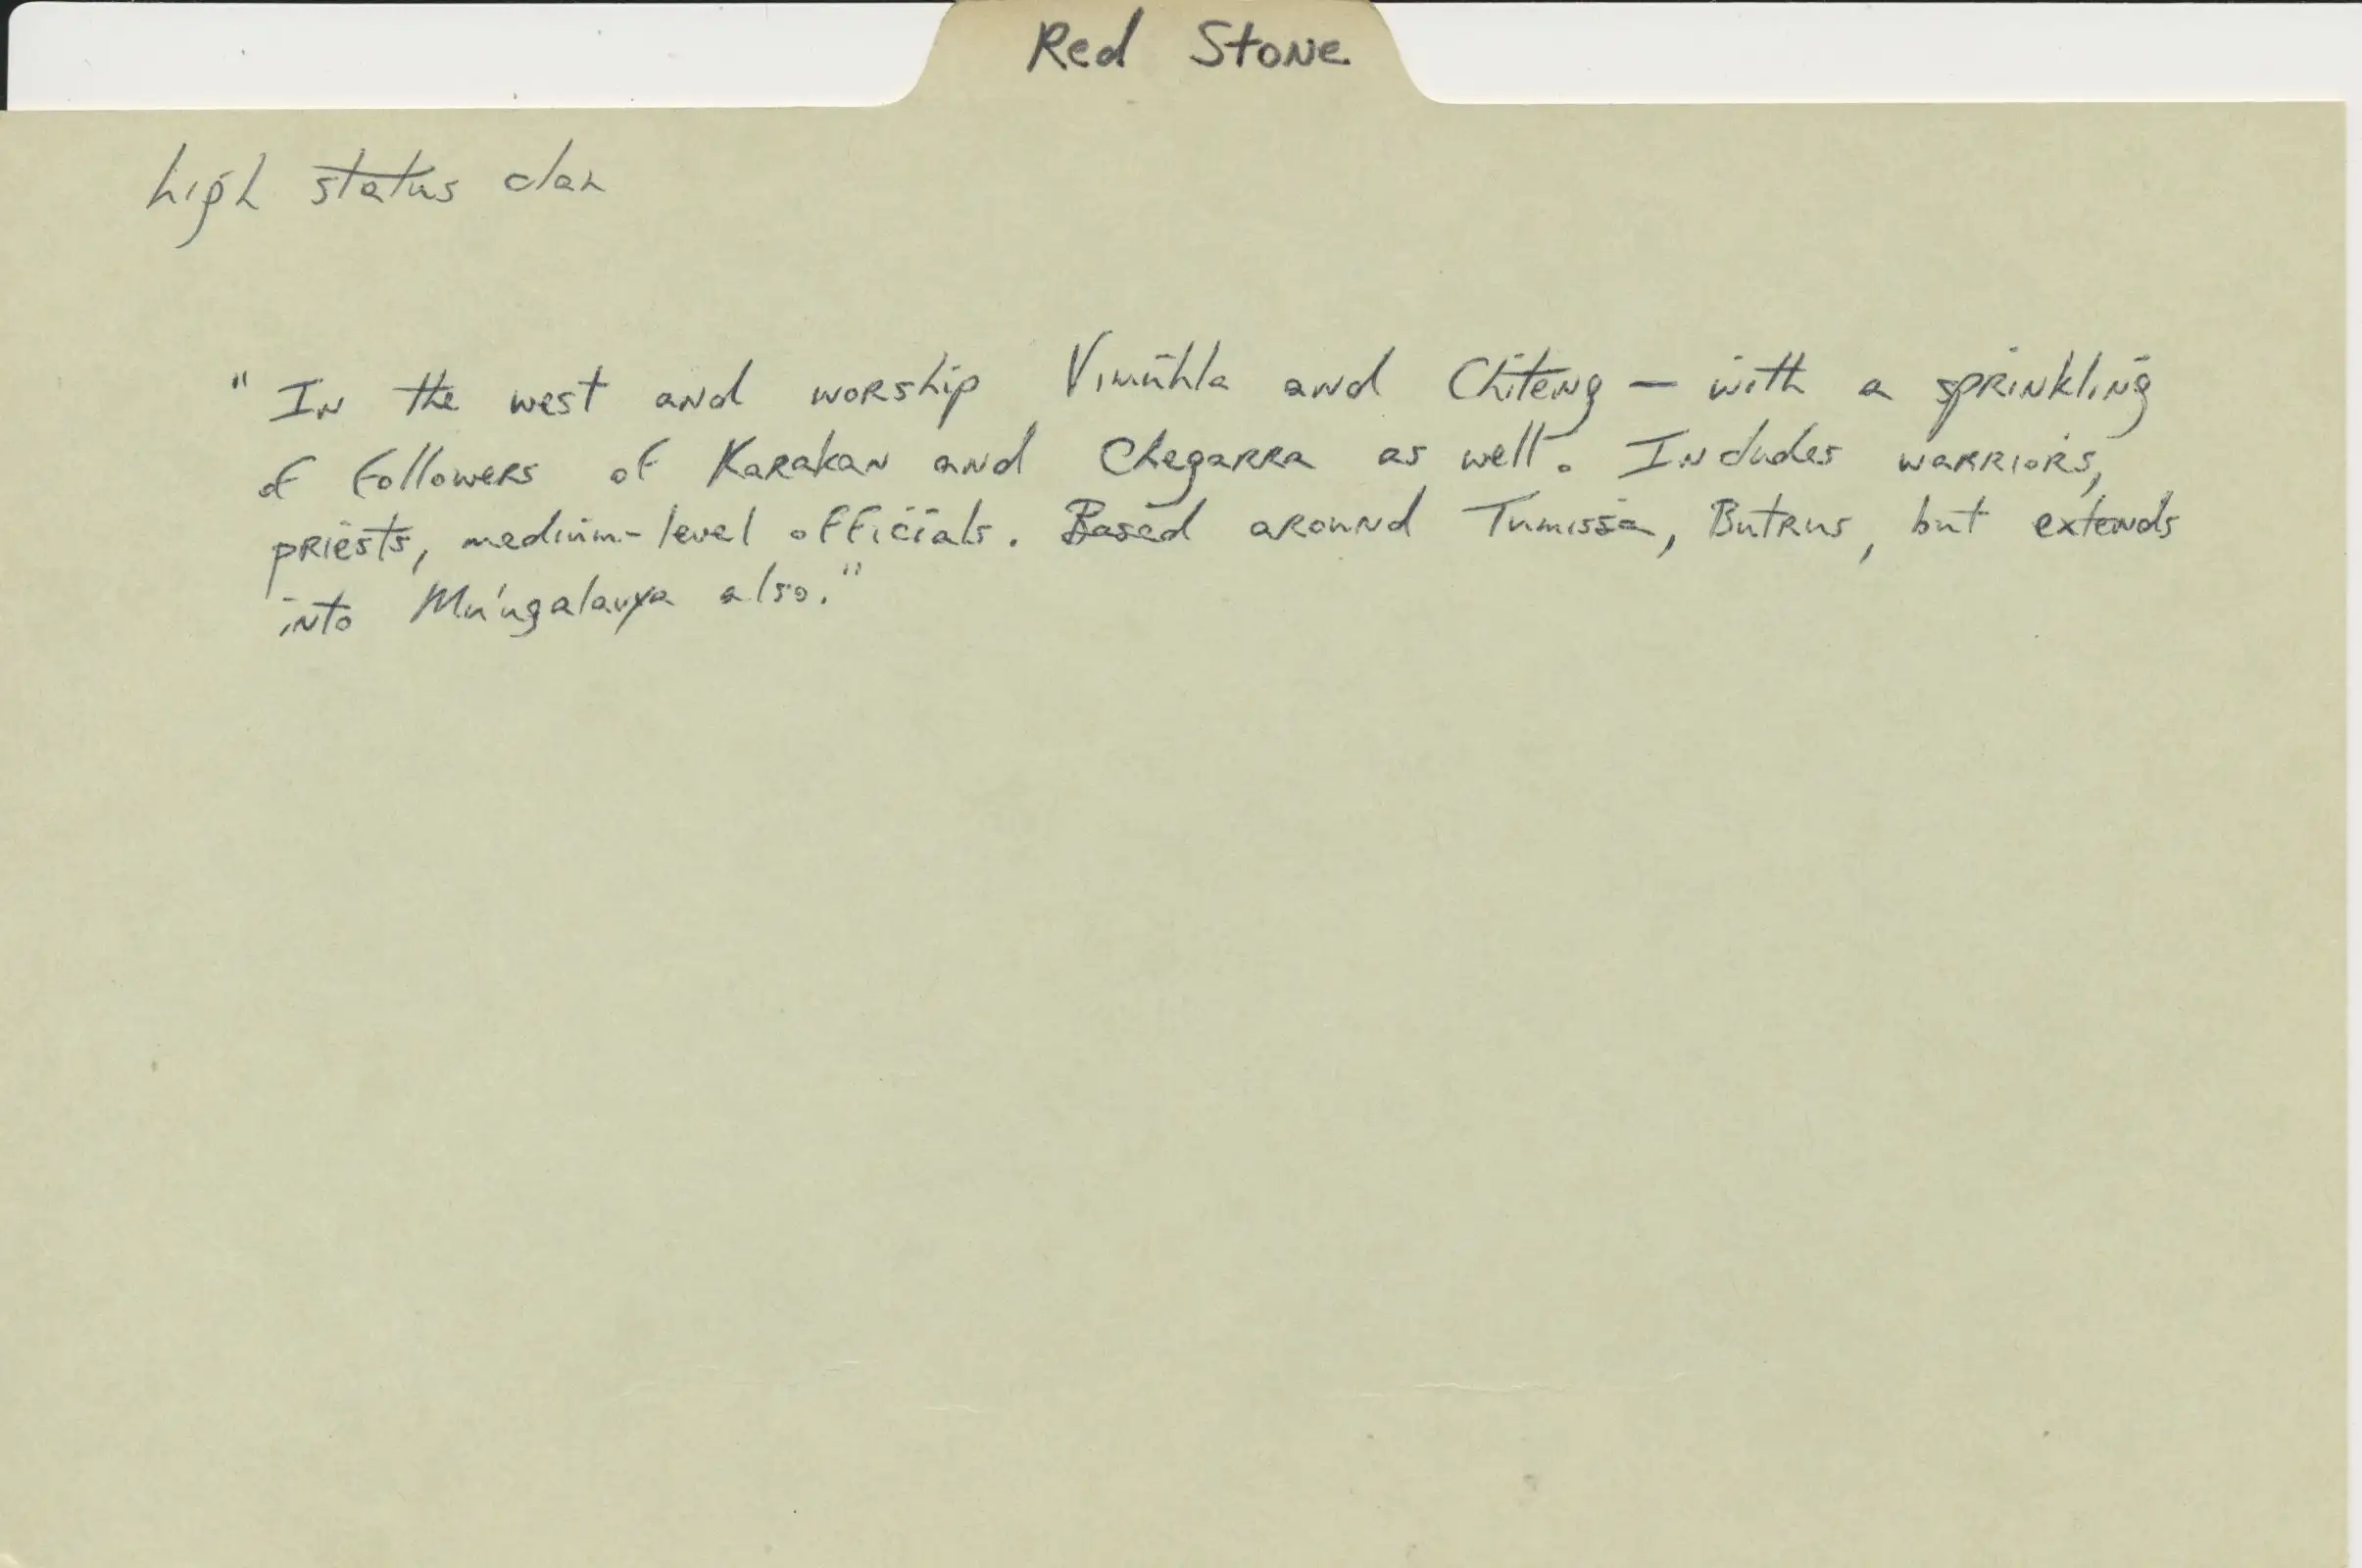 Red Stone
high status clan
"In the west and worship Vimuhla and Chiteng — with a sprinkling
of followers of Karakan and Chegarra as well. Includes warriors,
priests, medium-level officials. Based around Tumissa, Butrus, but extends
into Mu'ugalavya also."